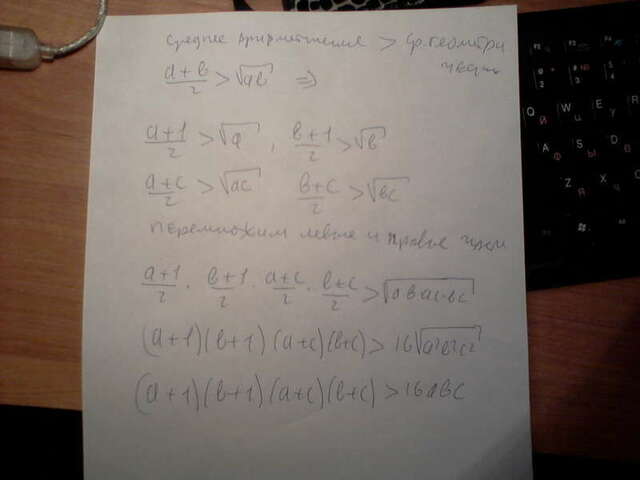 Среднее арифметическое > ср. геометри
ческ
a+b/2 > √ab ⇒
a+1/2 > √a , b+1/2 > √b
a+c/2 > √ac b+c/2 > √bc
перемножим левые и правые части
a+1/2 · b+1/2 · a+c/2 · b+c/2 > √ab·ac·bc
(a+1)(b+1)(a+c)(b+c) > 16√a²b²c²
(a+1)(b+1)(a+c)(b+c) > 16abc